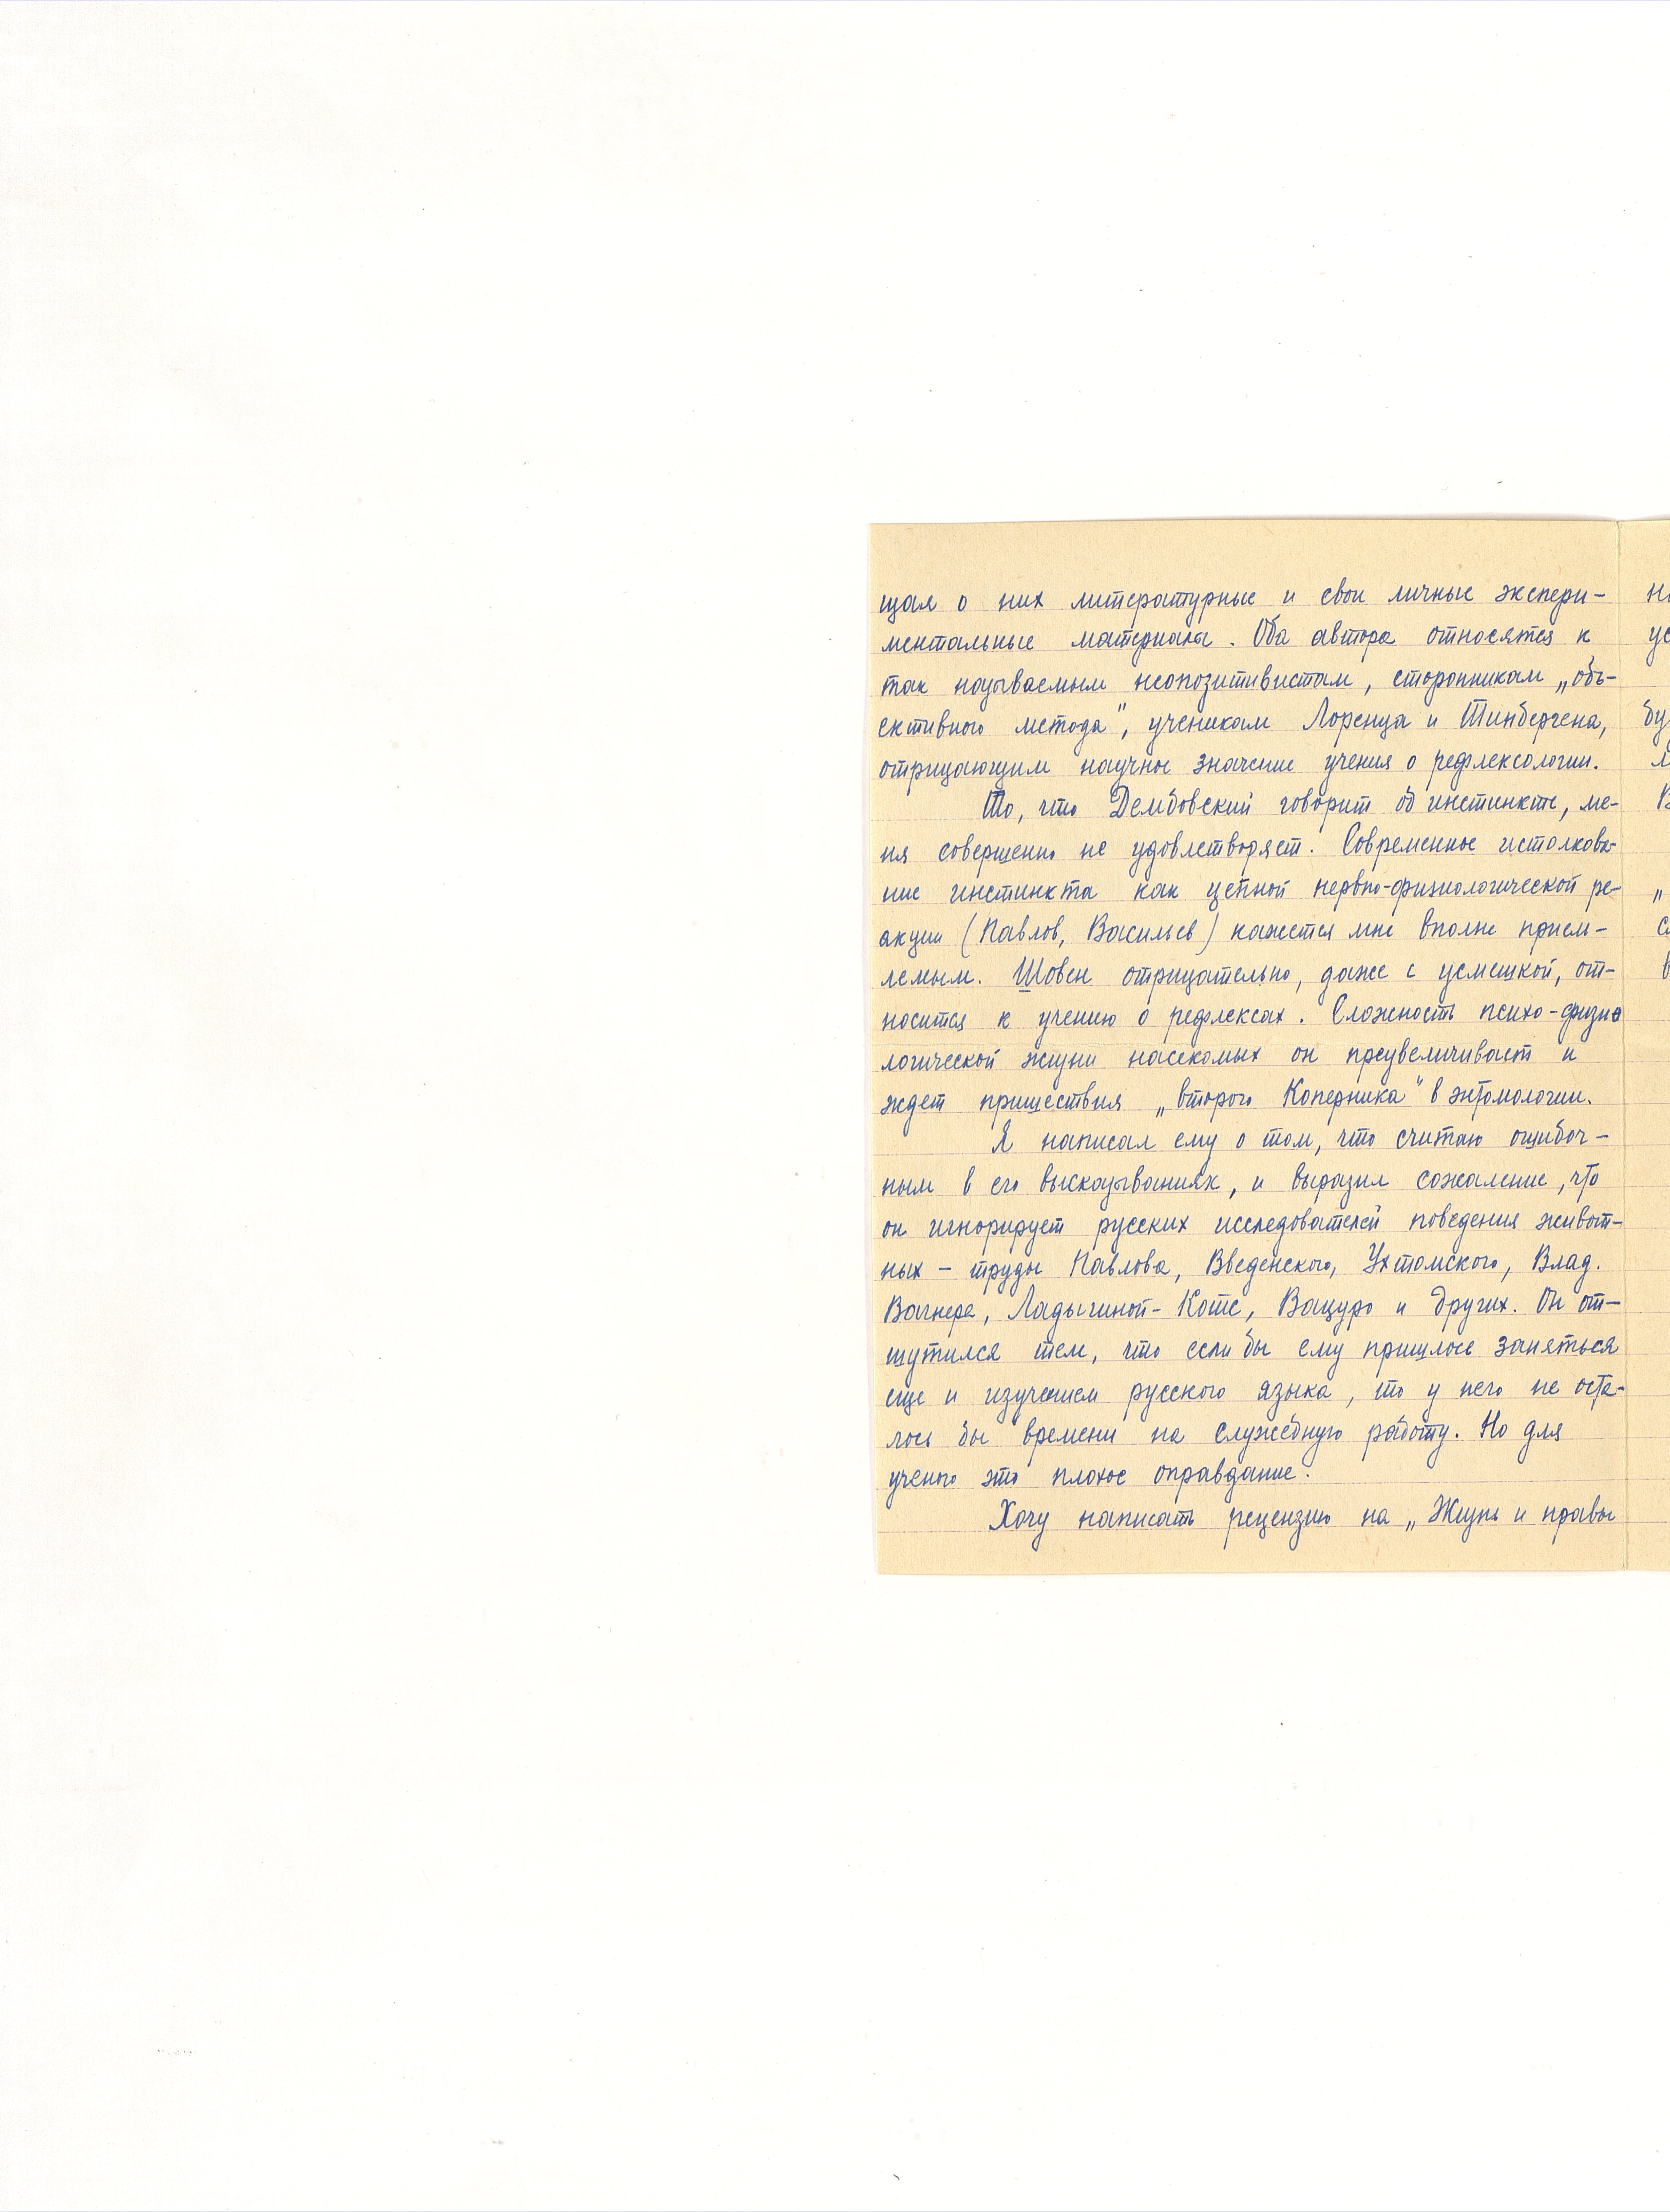 щая о них литературные и свои личные экспери-
ментальные материалы. Оба автора относятся к
так называемым неопозитивистам, сторонникам „объ-
ективного метода", ученикам Лоренца и Тинбергена,
отрицающим научное значение учения о рефлексологии.
То, что Дембовский говорит об инстинкте, ме-
ня совершенно не удовлетворяет. Современное истолкова-
ние инстинкта как цепной нервно-физиологической ре-
акции (Павлов, Васильев) кажется мне вполне прием-
лемым. Шовен отрицательно, даже с усмешкой, от-
носится к учению о рефлексах. Сложность психо-физио
логической жизни насекомых он преувеличивает и
ждет пришествия „второго Коперника" в энтомологии.
Я написал ему о том, что считаю ошибоч-
ным в его высказываниях, и выразил сожаление, что
он игнорирует русских исследователей поведения живот-
ных – труды Павлова, Введенского, Ухтомского, Влад.
Вагнера, Ладыгиной-Котс, Вацуро и других. Он от-
шутился тем, что если бы ему пришлось заняться
еще и изучением русского языка, то у него не оста-
лось бы времени на служебную работу. Но для
ученого это плохое оправдание.
Хочу написать рецензию на „Жизнь и нравы